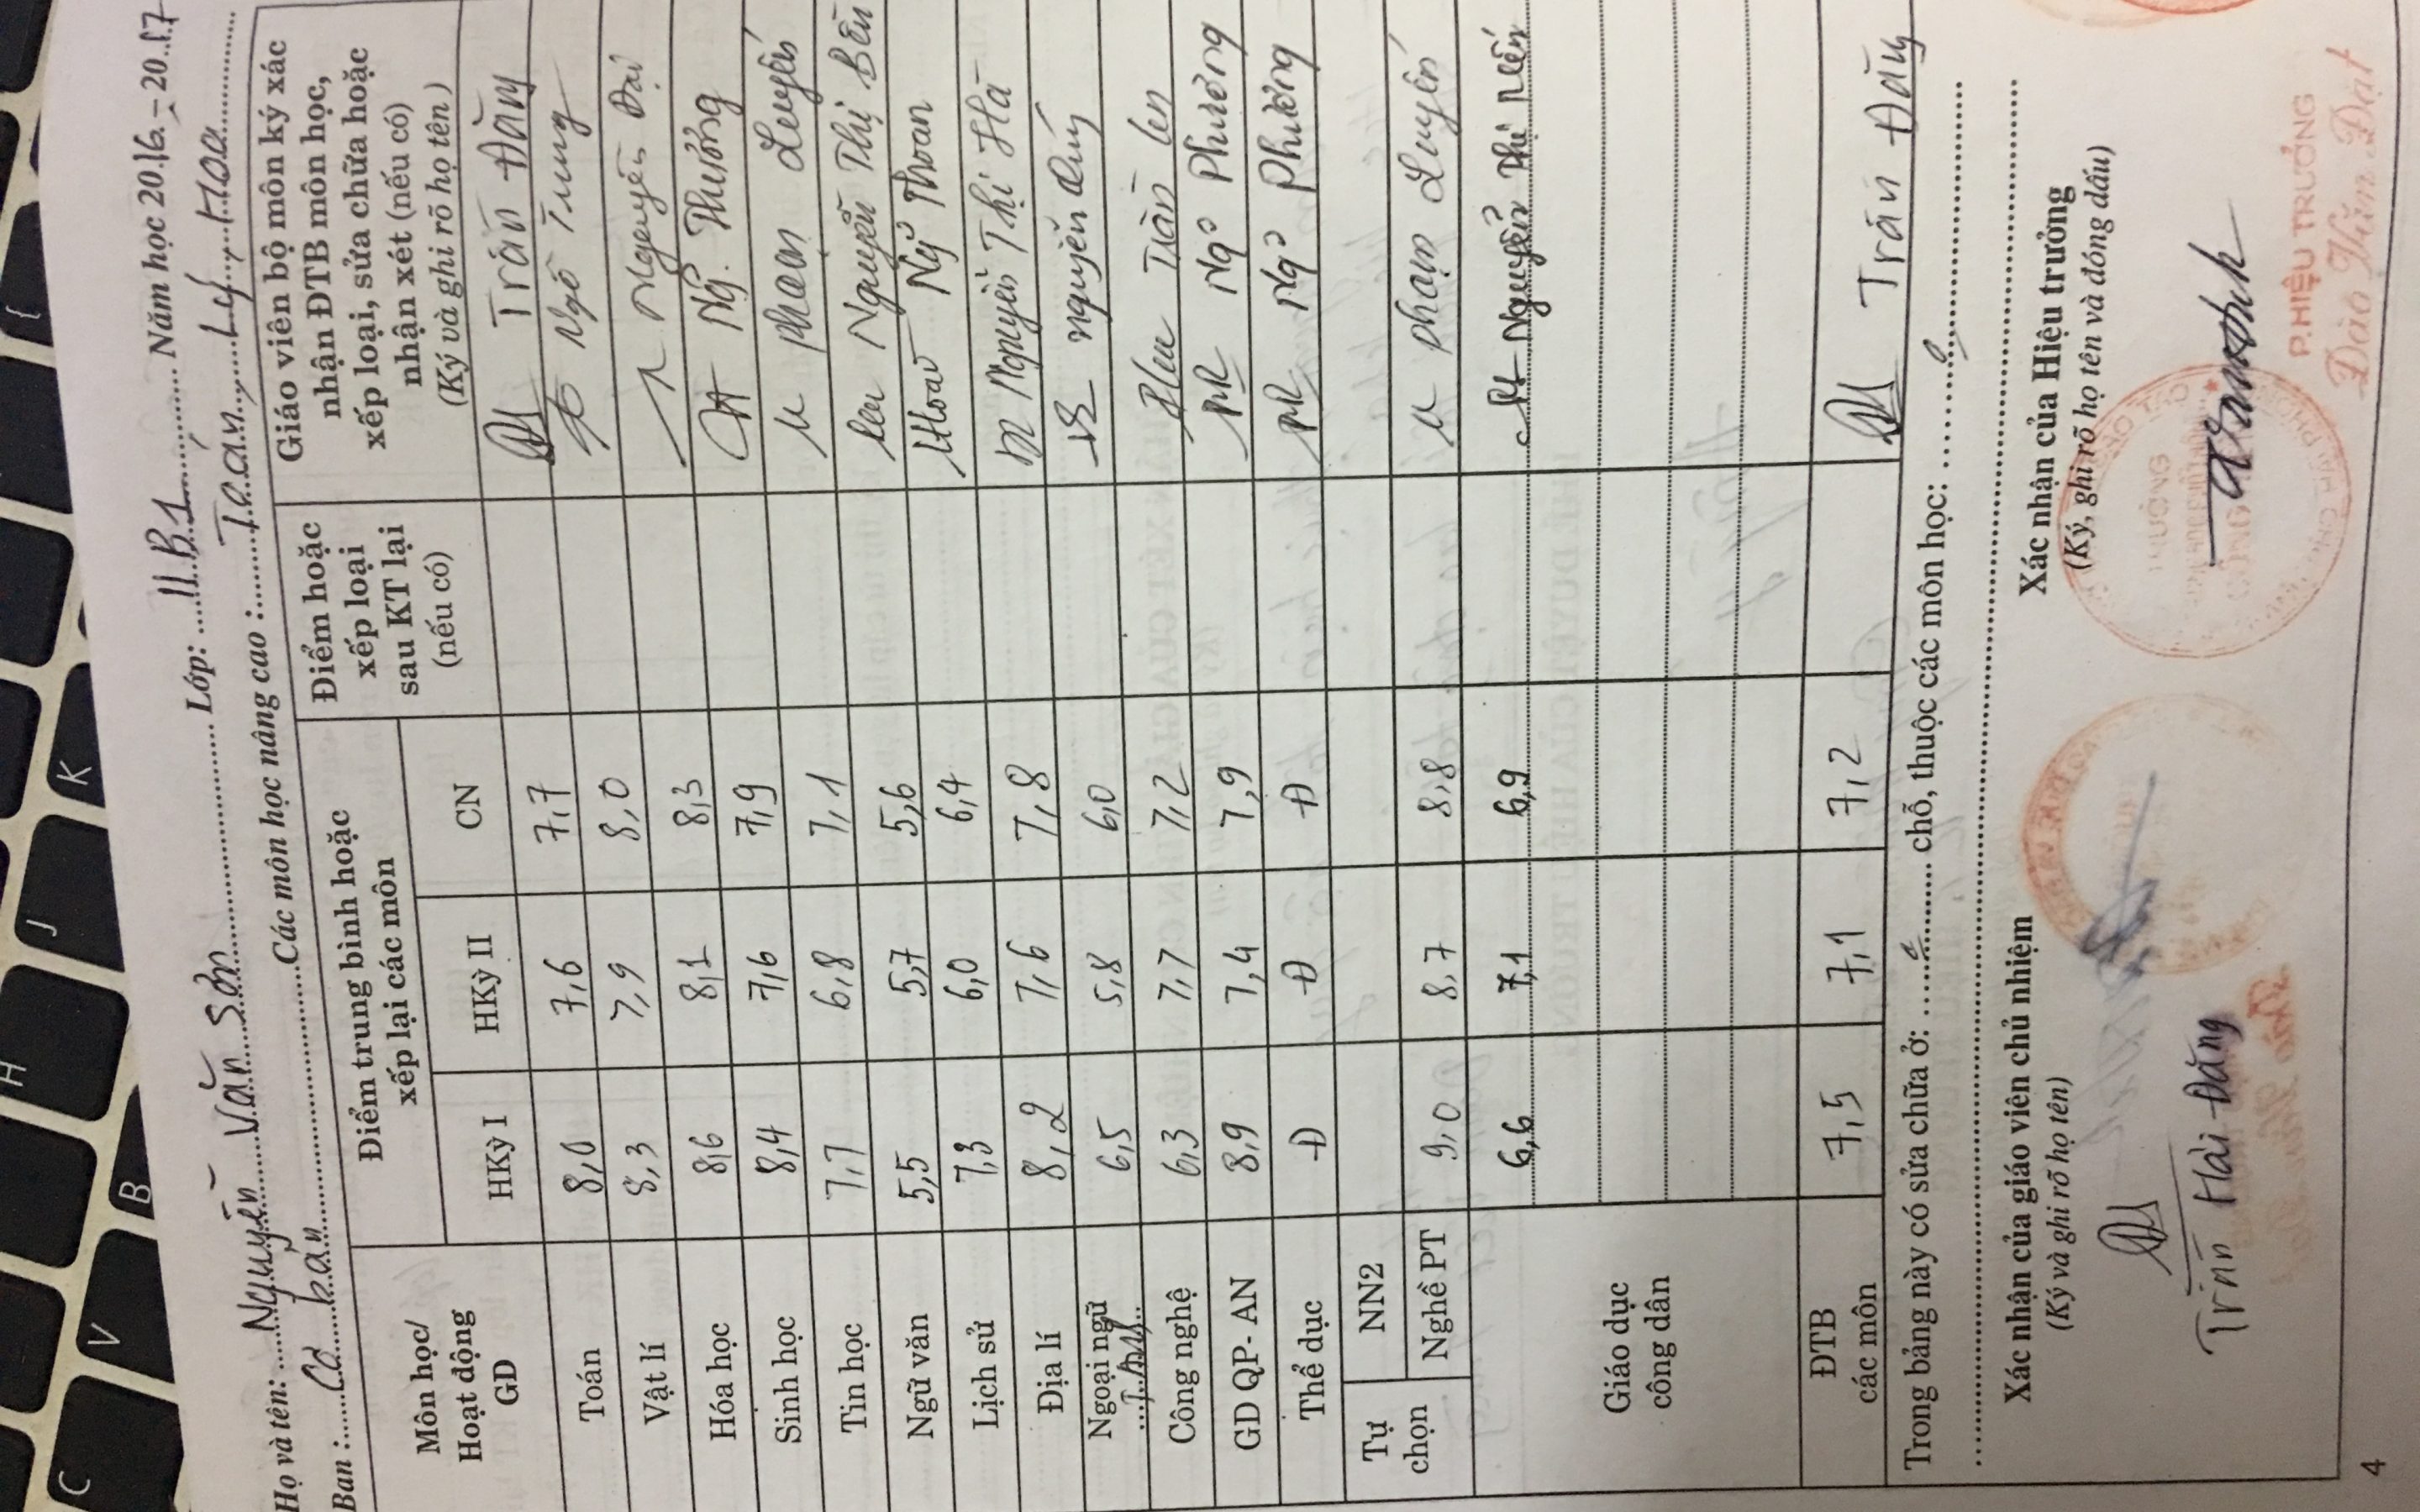 Họ và tên: Nguyễn Văn Sơn Lớp: 11B1 Năm học 2016 - 2017
Ban: Cơ bản Các môn học nâng cao: Toán, Lý, Hoá
Môn học/ Hoạt động GD
Điểm trung bình hoặc xếp lại các môn
Điểm hoặc xếp loại sau KT lại (nếu có)
Giáo viên bộ môn ký xác nhận ĐTB môn học, xếp loại, sửa chữa hoặc nhận xét (nếu có) (Ký và ghi rõ họ tên)
HKỳ I HKỳ II CN
Toán 8,0 7,6 7,7 Trần Đăng
Vật lí 8,3 7,9 8,0 Ngô Trung
Hóa học 8,6 8,1 8,3 Nguyễn Đại
Sinh học 8,4 7,6 7,9 Ng. Thưởng
Tin học 7,7 6,8 7,1 Phạm Luyến
Ngữ văn 5,5 5,7 5,6 Nguyễn Thị Bền
Lịch sử 7,3 6,0 6,4 Ng Thoan
Địa lí 8,2 7,6 7,8 Nguyễn Thị Hà
Ngoại ngữ T.Anh 6,5 5,8 6,0 Nguyễn
Công nghệ 6,3 7,7 7,2 Trần
GD QP- AN 8,9 7,4 7,9 Ngô Phương
Thể dục Đ Đ Đ Ngô Phương
Tự chọn
NN2
Nghề PT 9,0 8,7 8,8 Phạm Luyến
Giáo dục công dân 6,6 7,1 6,9 Nguyễn Thị Mến
ĐTB các môn 7,5 7,1 7,2 Trần Đăng
Trong bảng này có sửa chữa ở: 0 chỗ, thuộc các môn học: 0
Xác nhận của giáo viên chủ nhiệm
(Ký và ghi rõ họ tên)
Xác nhận của Hiệu trưởng
(Ký, ghi rõ họ tên và đóng dấu)
Trần Hải Đăng
P.HIỆU TRƯỞNG
Đào Văn Đạt
4
C
V
B
H
J
K